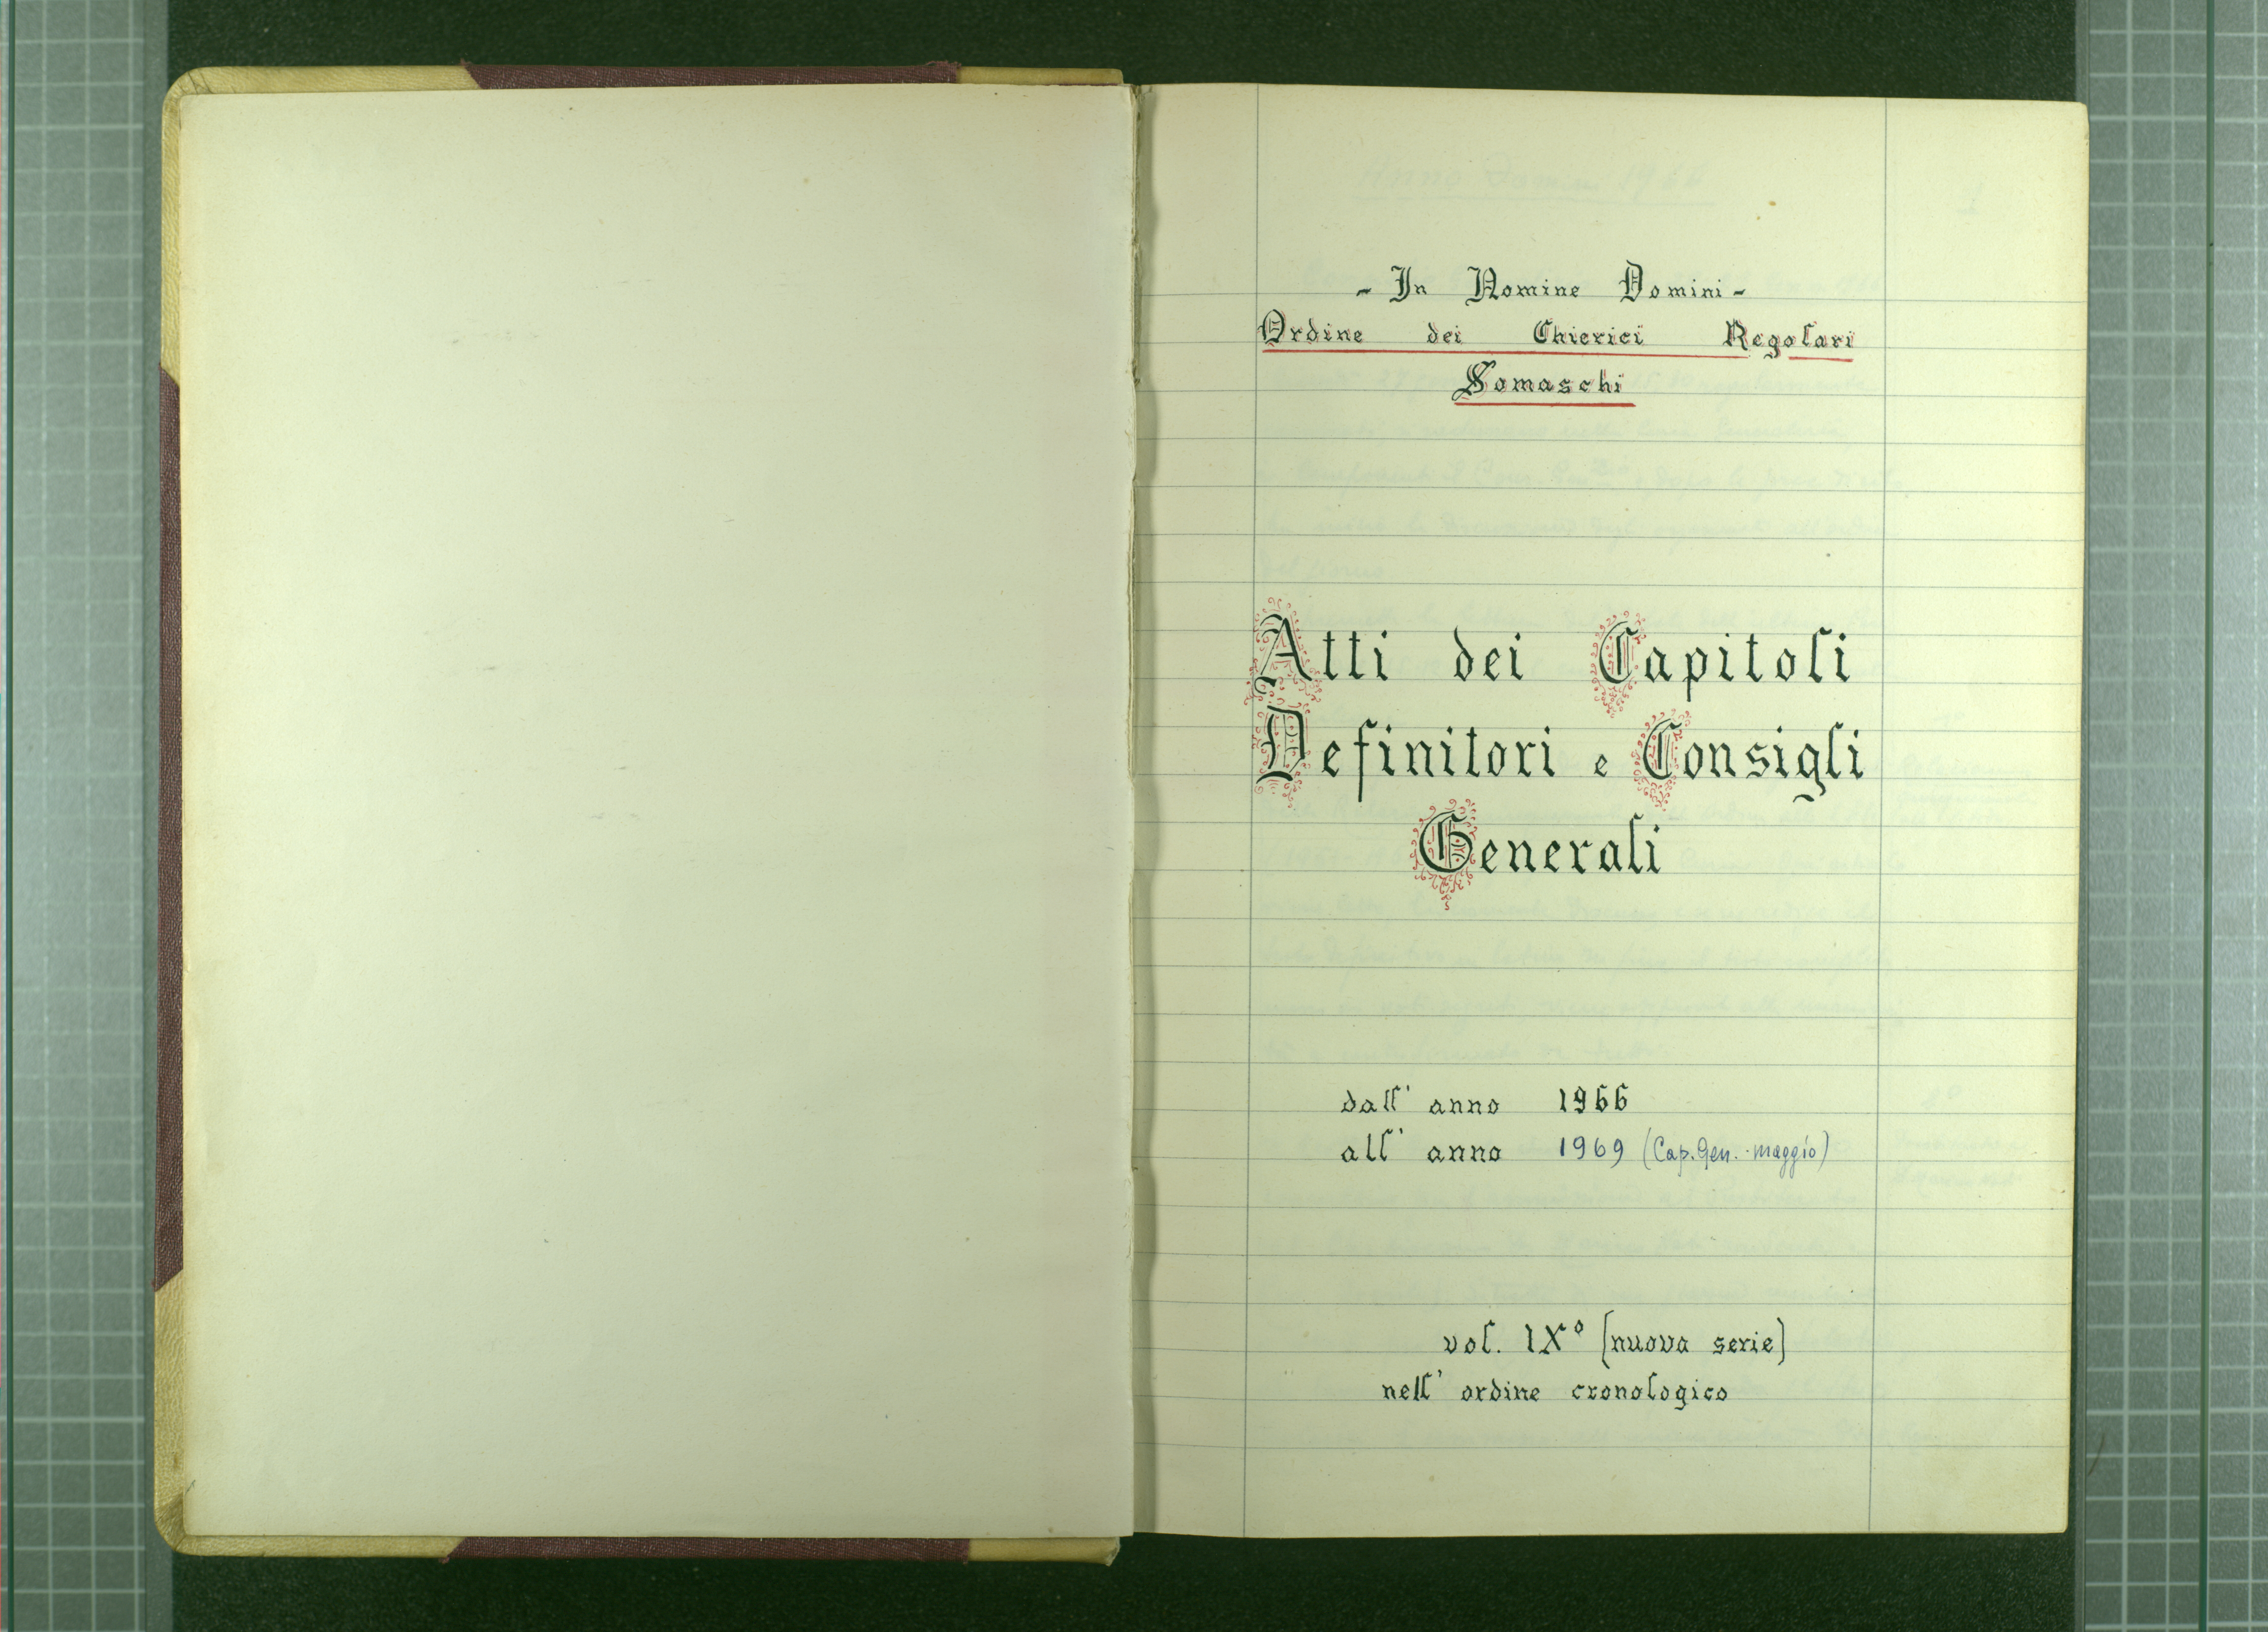 - In Nomine Domini -
Ordine dei Chierici Regolari
Somaschi
Atti dei Capitoli
Definitori e Consigli
Generali
dall' anno 1966
all' anno 1969 (Cap. Gen. - maggio)
vol. IX° (nuova serie)
nell' ordine cronologico